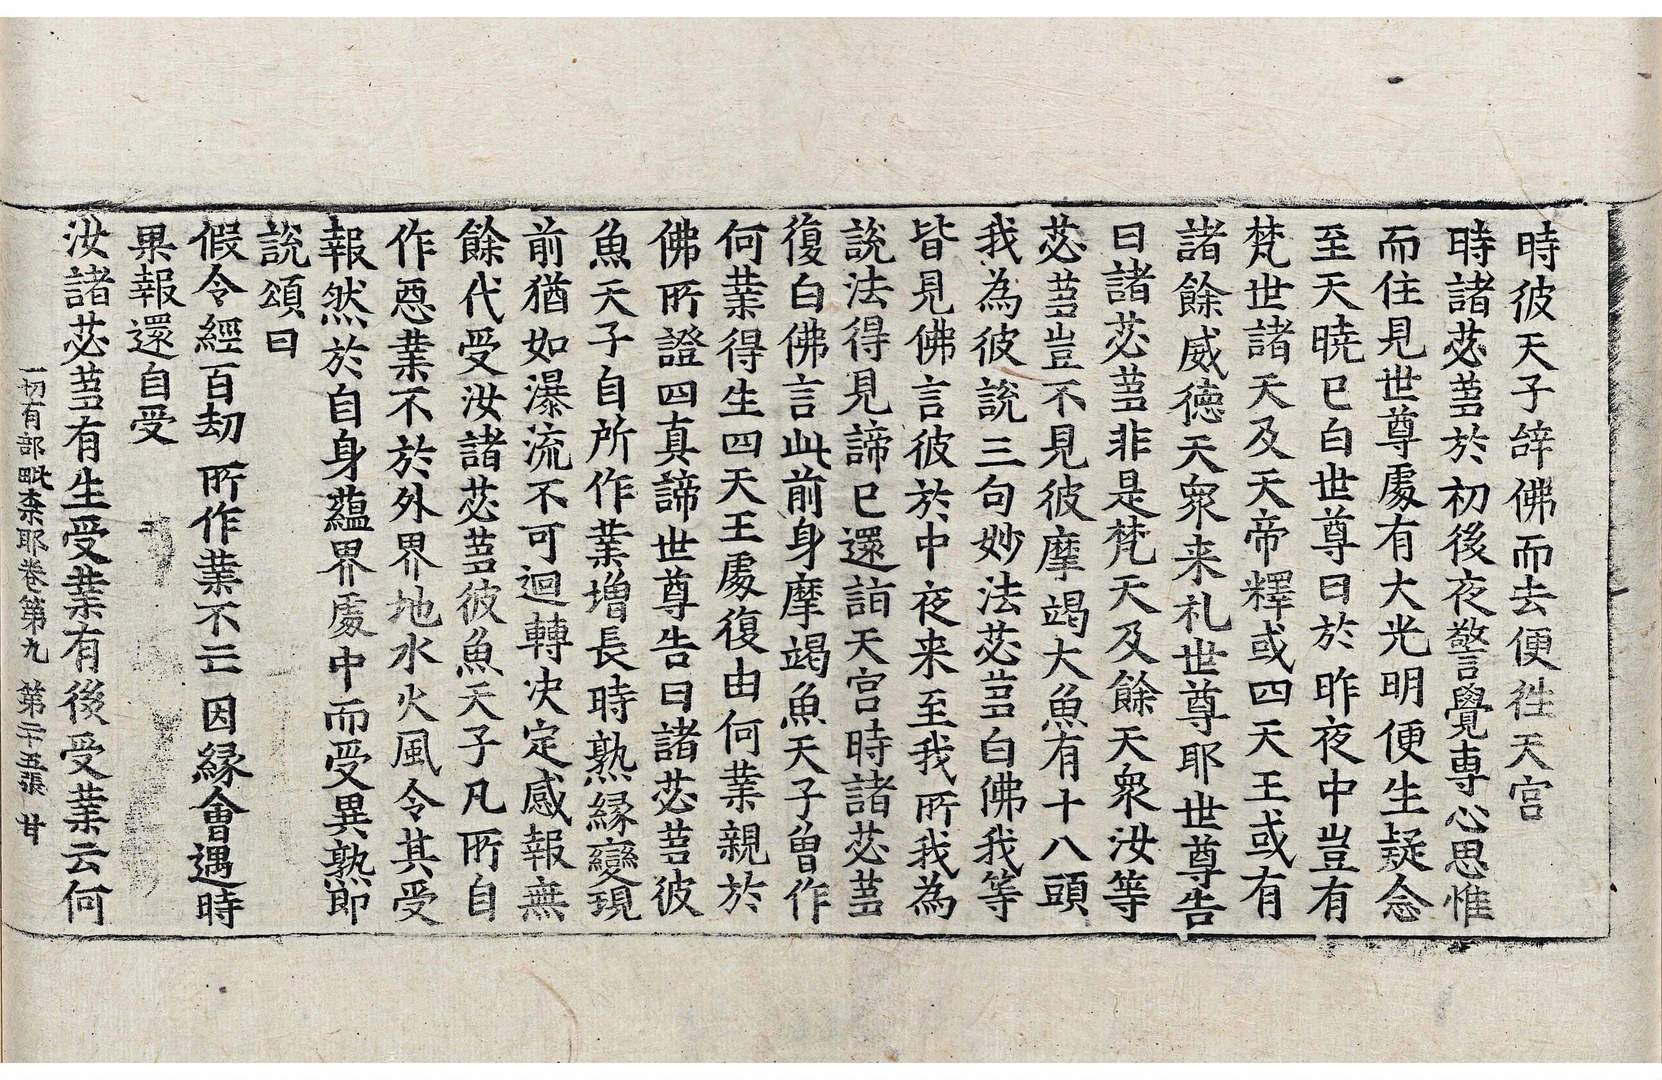 時彼天子辭佛而去便徃天宫
時諸苾蒭於初後夜警覺専心思惟
而住見世尊處有大光明便生疑念
至天暁已白世尊曰於昨夜中豈有
梵世諸天及天帝釋或四天王或有
諸餘威德天衆来礼世尊耶世尊告
曰諸苾蒭非是梵天及餘天衆汝等
苾蒭豈不見彼摩竭大魚有十八頭
我為彼說三句妙法苾蒭白佛我等
皆見佛言彼於中夜来至我所我為
說法得見諦已還詣天宫時諸苾蒭
復白佛言此前身摩竭魚天子曽作
何業得生四天王處復由何業親於
佛所證四真諦世尊告曰諸苾蒭彼
魚天子自所作業增長時熟縁變現
前猶如瀑流不可迴轉决定感報無
餘代受汝諸苾蒭彼魚天子凡所自
作惡業不於外界地水火風令其受
報然於自身蘊界處中而受異熟即
說頌曰
假令經百劫 所作業不亡 因縁會遇時
果報還自受
一切有部毗奈耶卷第九 第二十五張 甘
汝諸苾蒭有生受業有後受業云何